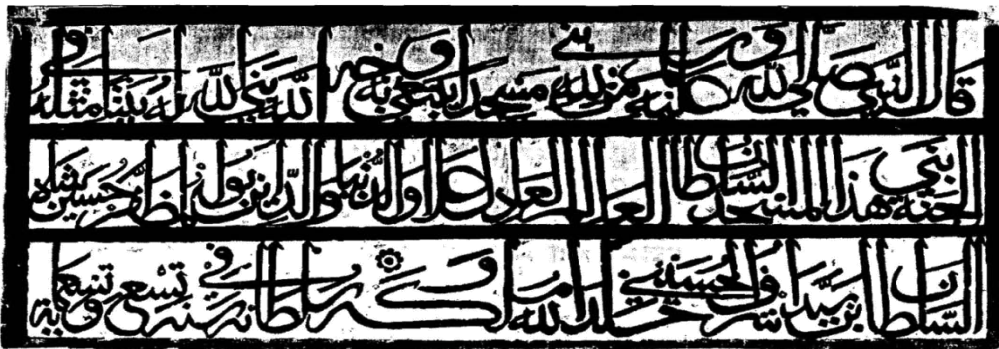 قال النبي صلى الله عليه وسلم من بنى لله مسجدا يبتغي به وجه الله بنى الله له بيتا مثله في
الجنة بني هذا المسجد السلطان العادل علاء الدنيا والدين ابو المظفر حسين شاه
السلطان بن سيد اشرف الحسيني خلد الله ملكه و سلطانه في سنة تسع وتسعماية